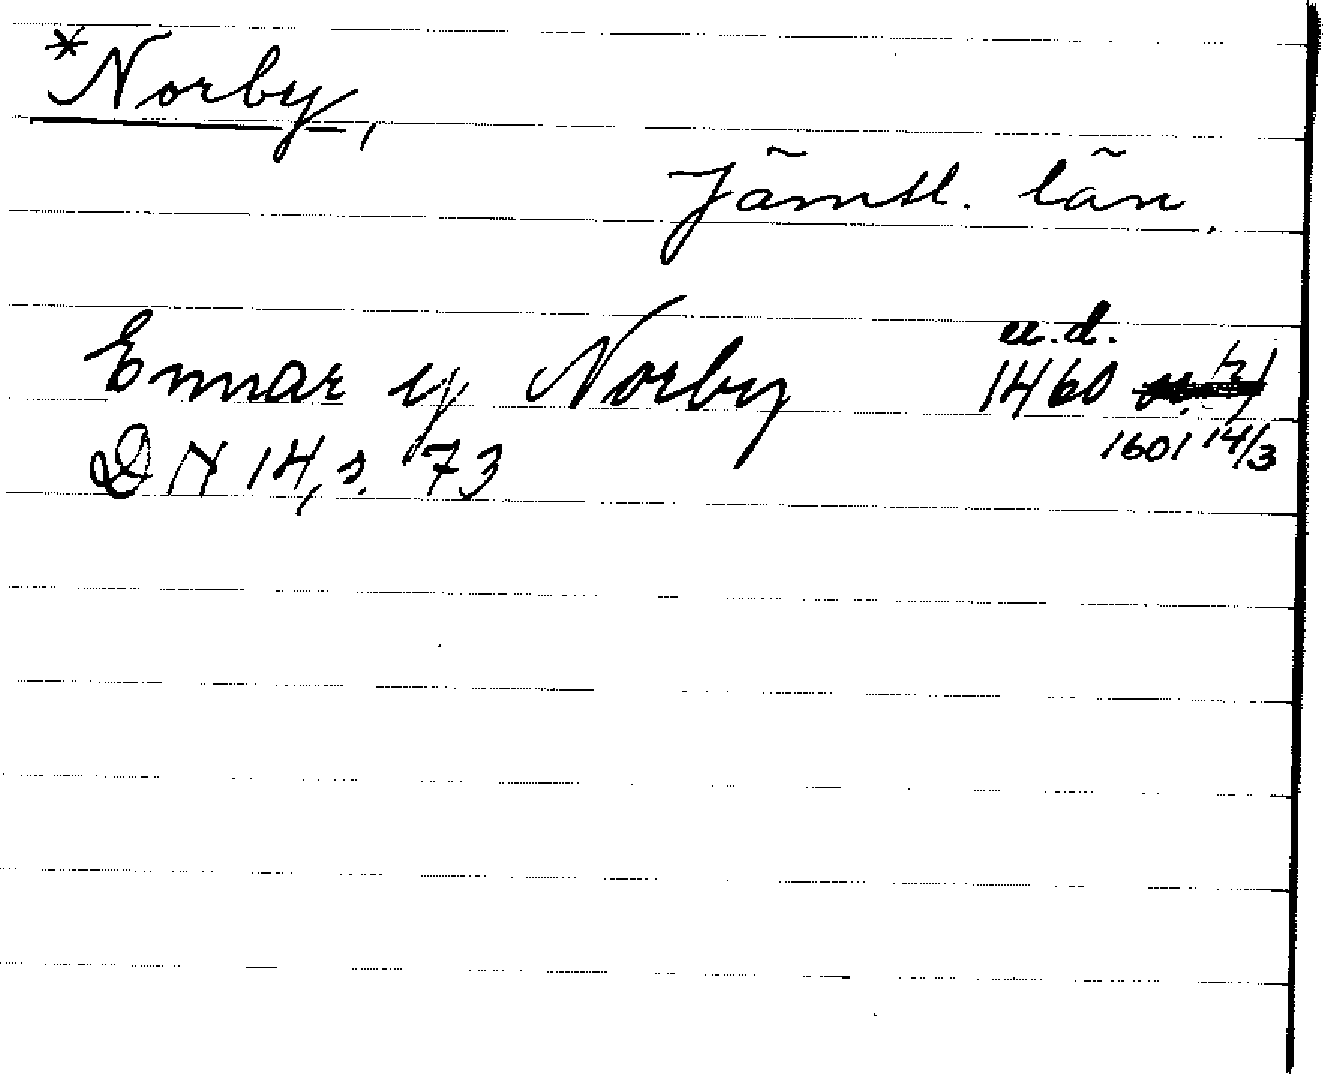 *Norby,
Jämtl. län.
Ennar y Norby u.d. 1460
1601 14/3
DN 14, s. 73